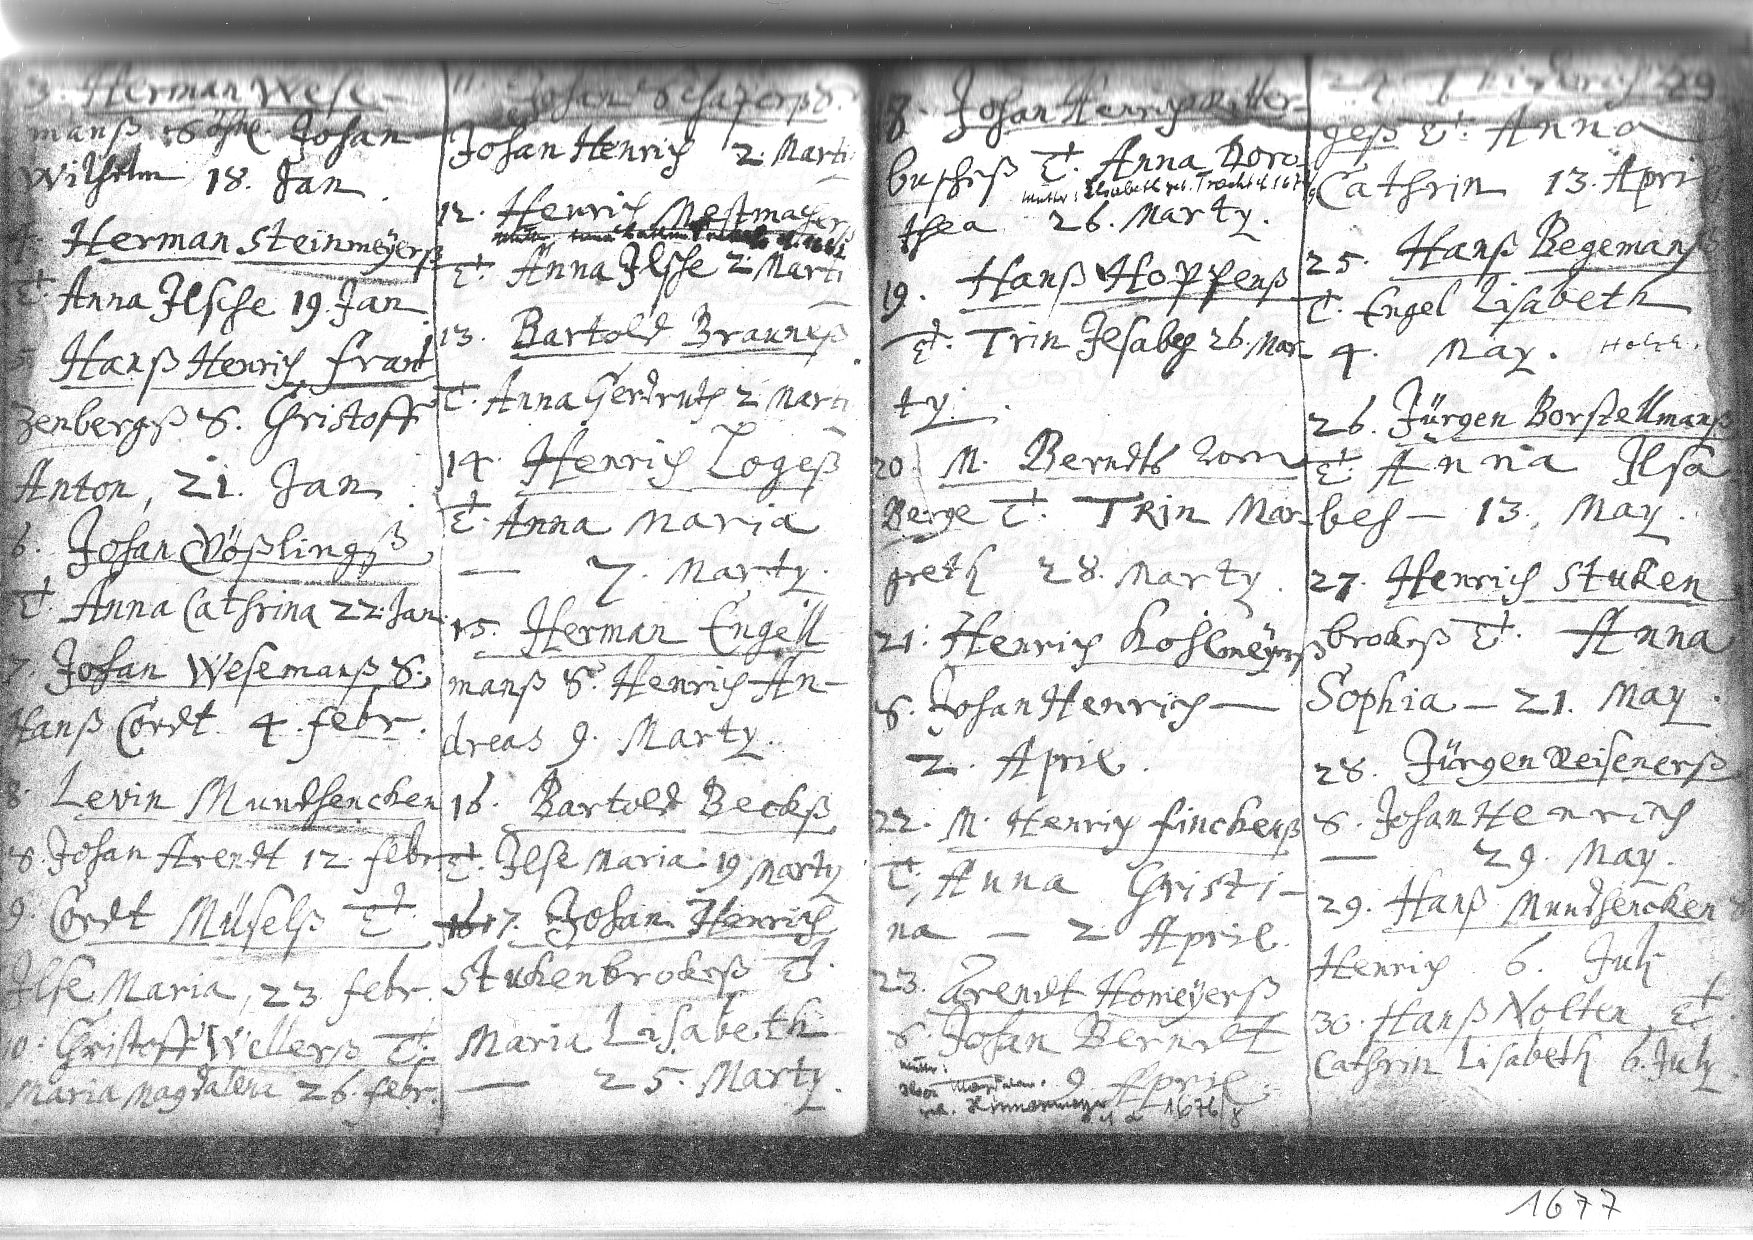 3. Herman Wese-
manß Söhl. Johan
Wilhelm 18. Jan.
4. Herman Steinmeyerß
T. Anna Ilsche 19. Jan.
5 Hanß Henrich Frant
zenbergß S. Christoff
Anton, 21. Jan
6. Johan Vößlingß
T. Anna Cathrina 22. Jan.
7. Johan Wesemanß S.
Hanß Cordt 4. febr.
8. Levin Mundhencken
S. Johan Arendt 12 febr
9. Cordt Müselß T.
Ilse Maria, 23 febr.
10. Christoff Wellerß T.
Maria Magdalena 26. febr.
11. Johan Schaperß S.
Johan Henrich 2. Marti
12. Henrich Mestmacherß
T. Anna Ilsche 2. Marti
13. Bartold Braunß
T. Anna Gerdruth 2 Marti
14. Henrich Logeß
T. Anna Maria
— 7. Marty.
15. Herman Engell
manß S. Henrich An-
dreas 9. Marty.
16. Bartold Beckß
T. Ilse Maria 19 Marty
17. Johan Henrich
Stukenbrokß T.
Maria Lisabeth
— 25. Marty.
18. Johan Henrich
bußcheß T. Anna Doro-
Mutter: Elsabeth geb.
thea 26. Marty.
19. Hanß Hoppenß
T. Trin Ilsabeg 26. Mar-
ty.
20. M. Berndtß Vorm
Berge T. Trin Mar-
greth 28. Marty.
21. Henrich Kohlmeyerß
S. Johan Henrich —
2. April.
22. M. Henrich finckenß
T. Anna Christi-
na — 2 April.
23. Arendt Homeyerß
S. Johan Berndt
9. April.
1676/8
24. 29
geß T. Anna
Cathrin 13. April
25. Hanß Begemanß
T. Engel Lisabeth
4. May.
26. Jürgen Borstellmanß
T. Anna Ilsa
beh — 13. May.
27. Henrich Stuken
brokß T. Anna
Sophia — 21. May.
28. Jürgen Meisenerß
S. Johan Henrich
— 29. May.
29. Hanß Mundhencken S
Henrich 6. July
30. Hanß Nolten T.
Cathrin Lisabeth 6. July
1677